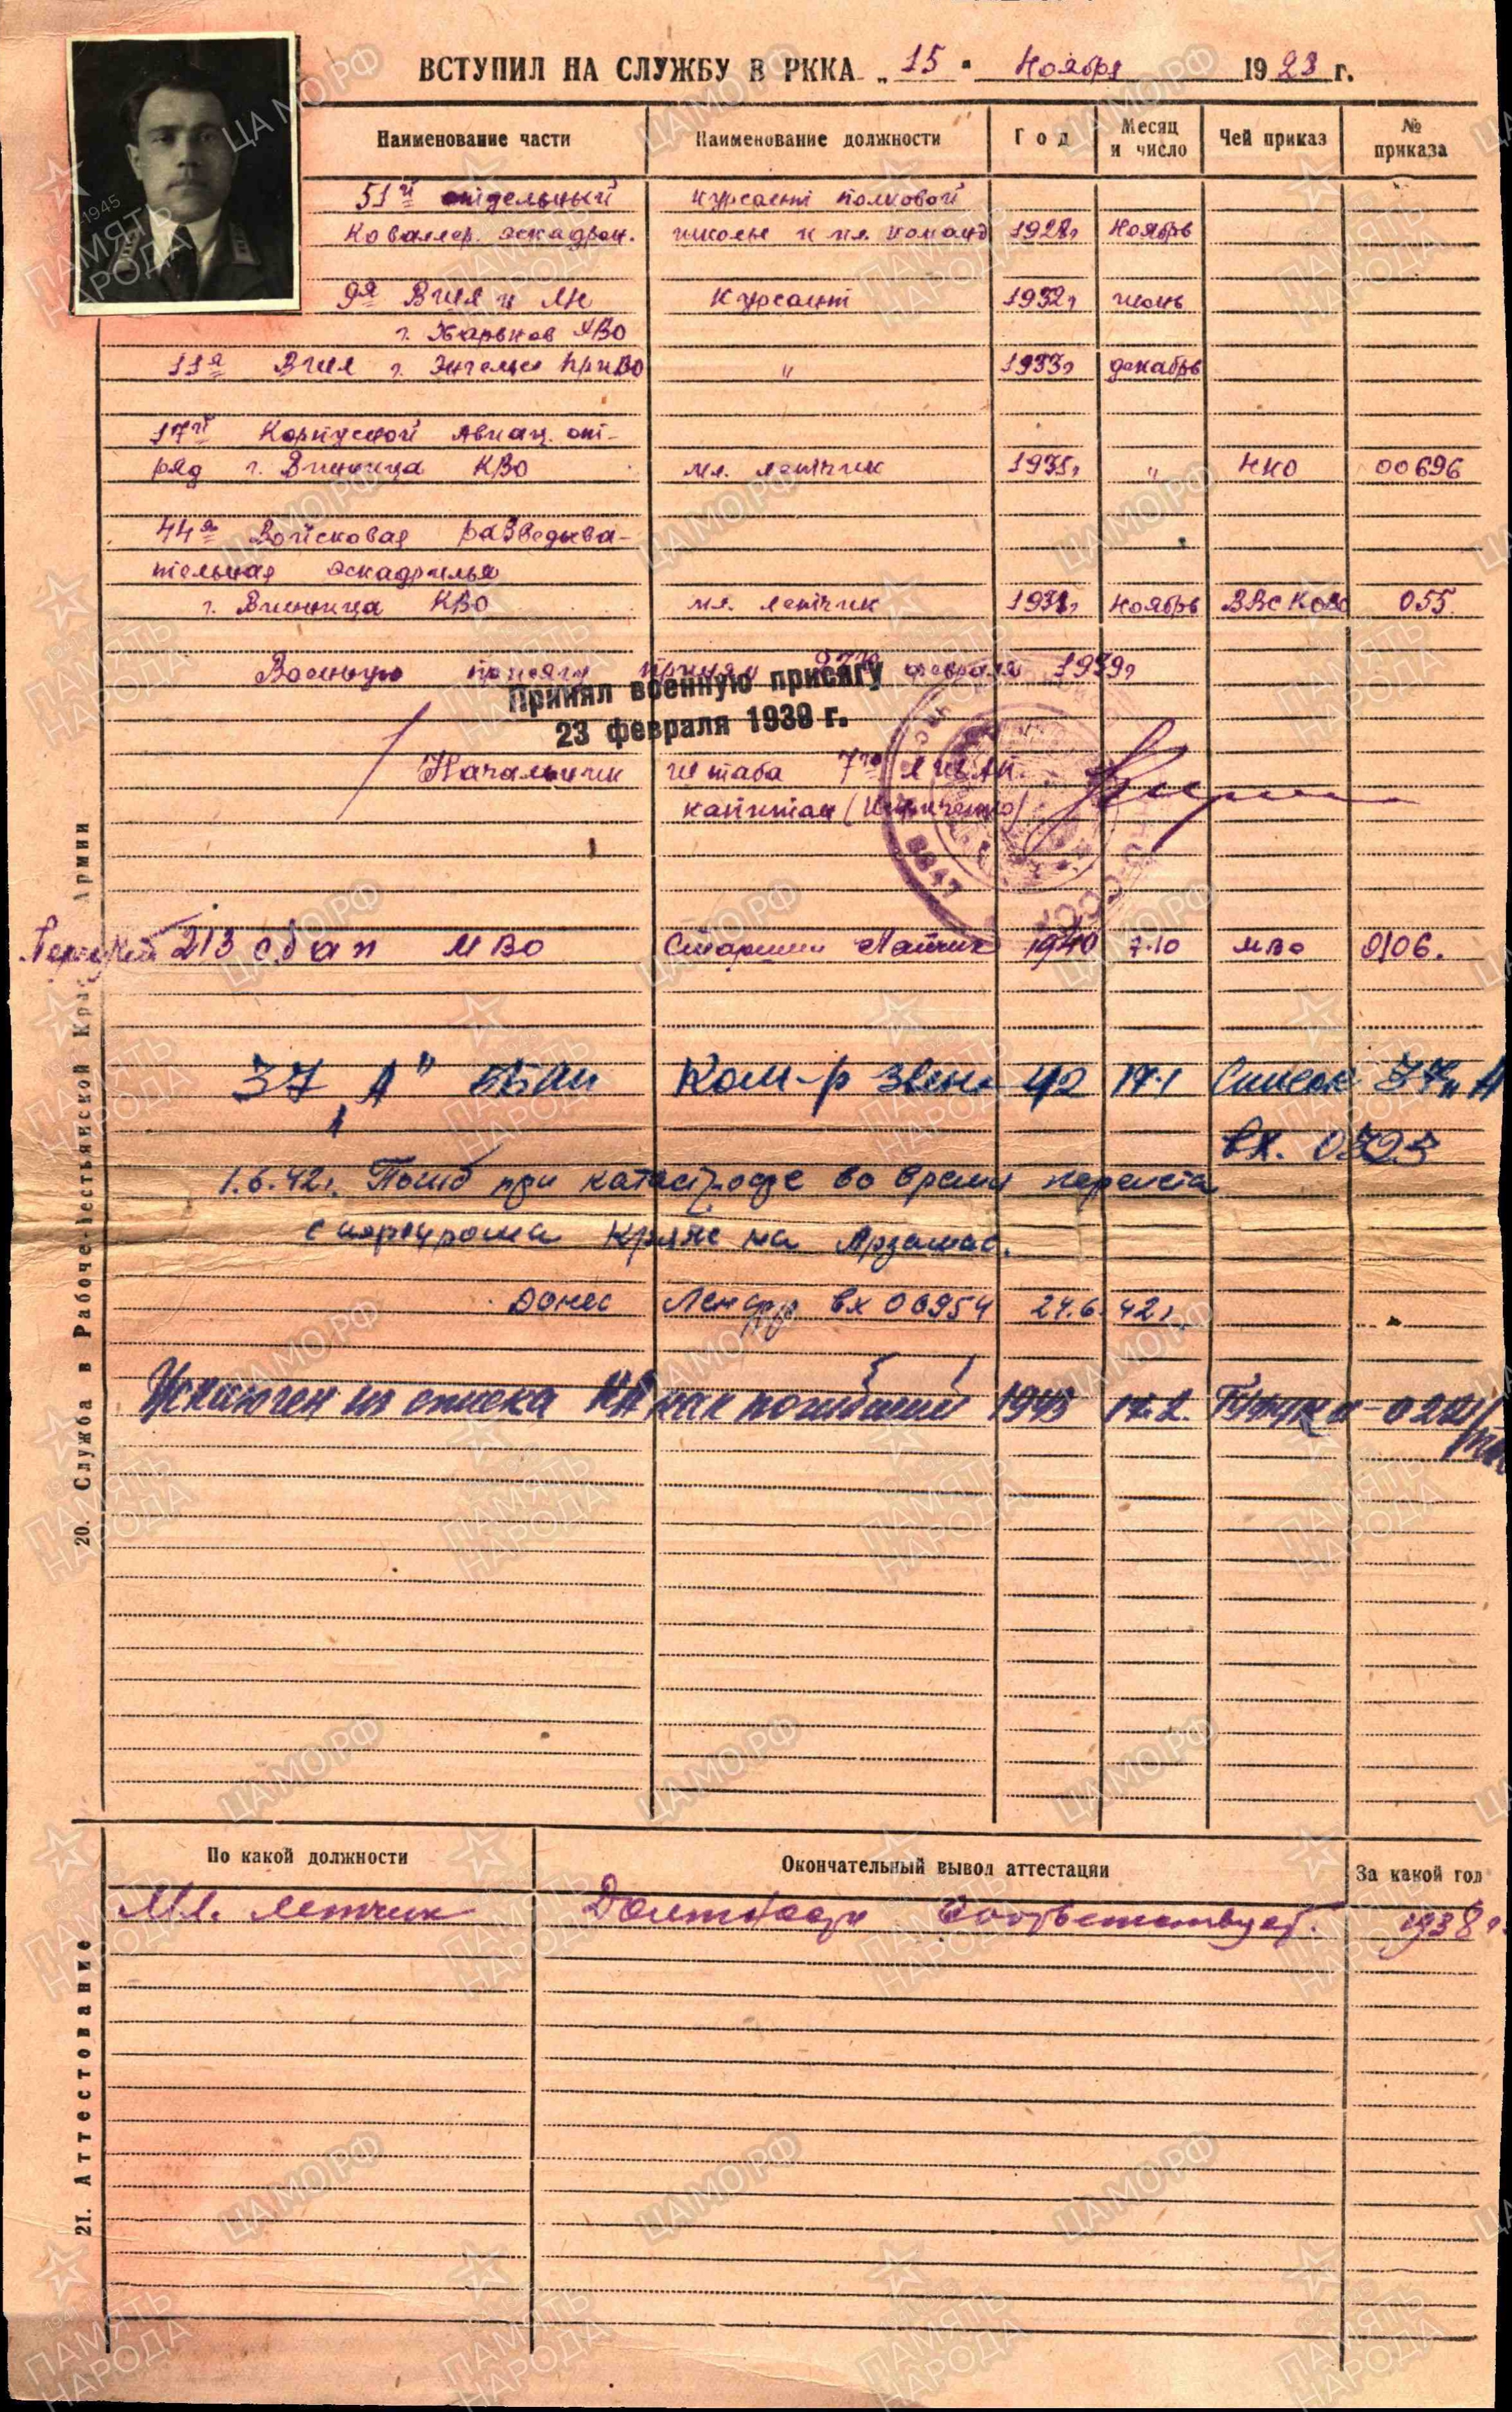 ВСТУПИЛ НА СЛУЖБУ В РККА „15" Ноября 1928 г.
Наименование части Наименование должности Год Месяц и число Чей приказ № приказа
51й отдельный курсант полковой
Кавалер. эскадрон. школы и мл. команд 1928г Ноябрь
9я Вшл и Лн Курсант 1932г июнь
г. Харьков ХВО
11я Вшл г. Энгельс ПриВО " 1933г декабрь
17й Корпусной Авиац. от-
ряд г. Винница КВО мл. летчик 1935г " НКО 00696
44я Войсковая разведыва-
тельная эскадрилья
г. Винница КВО мл. летчик 1938г Ноябрь ВВС КОВО 055.
Военную присягу принял февраля 1939г
Принял военную присягу
23 февраля 1939 г.
Начальник штаба 7го
капитан
213 сбап МВО Старший Летчик 1940 7.10 МВО 0106.
37 „А" ББАП Ком-р звена 42 17.1 Список 37 „А
вх. 0323
1.6.42г. Погиб при катастрофе во время перелета
с аэродрома Кряж на Арзамас.
Донес вх 06954 24.6.42г.
Исключен из списка КА как погибший 1943 17.2. 0221/
20. Служба в Рабоче-Крестьянской Красной Армии
По какой должности Окончательный вывод аттестации За какой год
Мл. летчик Должности Соответствует. 1938г.
21. Аттестование
ЦАМО.РФ
ПАМЯТЬ
НАРОДА